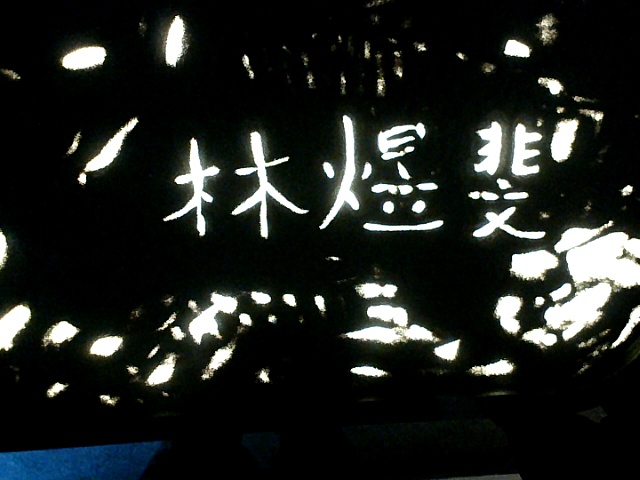 林煜斐